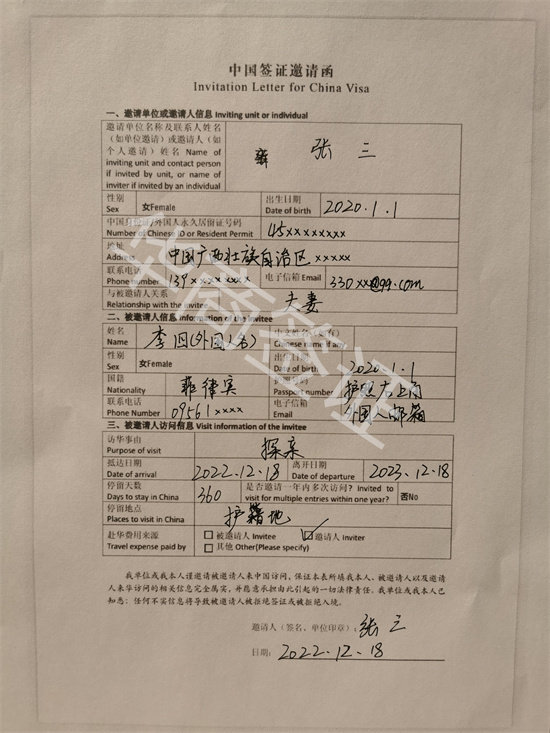 中国签证邀请函
Invitation Letter for China Visa
一、邀请单位或邀请人信息 Inviting unit or individual
邀请单位名称及联系人姓名
(如单位邀请)或邀请人(如
个人邀请)姓名 Name of
inviting unit and contact person
if invited by unit, or name of
inviter if invited by an individual
张三
性别
Sex
女Female
出生日期
Date of birth
2020.1.1
中国身份证/外国人永久居留证号码
Number of Chinese ID or Resident Permit
45xxxxxxxx
地址
Address
中国广西壮族自治区xxxxx
联系电话
Phone number
139xxxxxxxx
电子信箱 Email
330xx@qq.com
与被邀请人关系
Relationship with the invitee
夫妻
二、被邀请人信息 Information of the invitee
姓名
Name
李四(外国人名)
中文姓名(若有)
Chinese name if any
性别
Sex
女Female
出生日期
Date of birth
2020.1.1
国籍
Nationality
菲律宾
护照号码
Passport number
护照右上角
联系电话
Phone Number
09561xxxx
电子信箱
Email
外国人邮箱
三、被邀请人访问信息 Visit information of the invitee
访华事由
Purpose of visit
探亲
抵达日期
Date of arrival
2022.12.18
离开日期
Date of departure
2023.12.18
停留天数
Days to stay in China
360
是否邀请一年内多次访问? Invited to
visit for multiple entries within one year?
否No
停留地点
Places to visit in China
户籍地
赴华费用来源
Travel expense paid by
□ 被邀请人 Invitee
☑ 邀请人 Inviter
□ 其他 Other(Please specify)
我单位或我本人谨邀请被邀请人来中国访问,保证本表所填我本人、被邀请人以及邀请
人来华访问的相关信息完全属实,并愿意承担由此引起的一切法律责任。我单位或我本人已
知悉:任何不实信息将导致被邀请人被拒绝签证或被拒绝入境。
邀请人(签名、单位印章):张三
日期:2022.12.18
华商签证